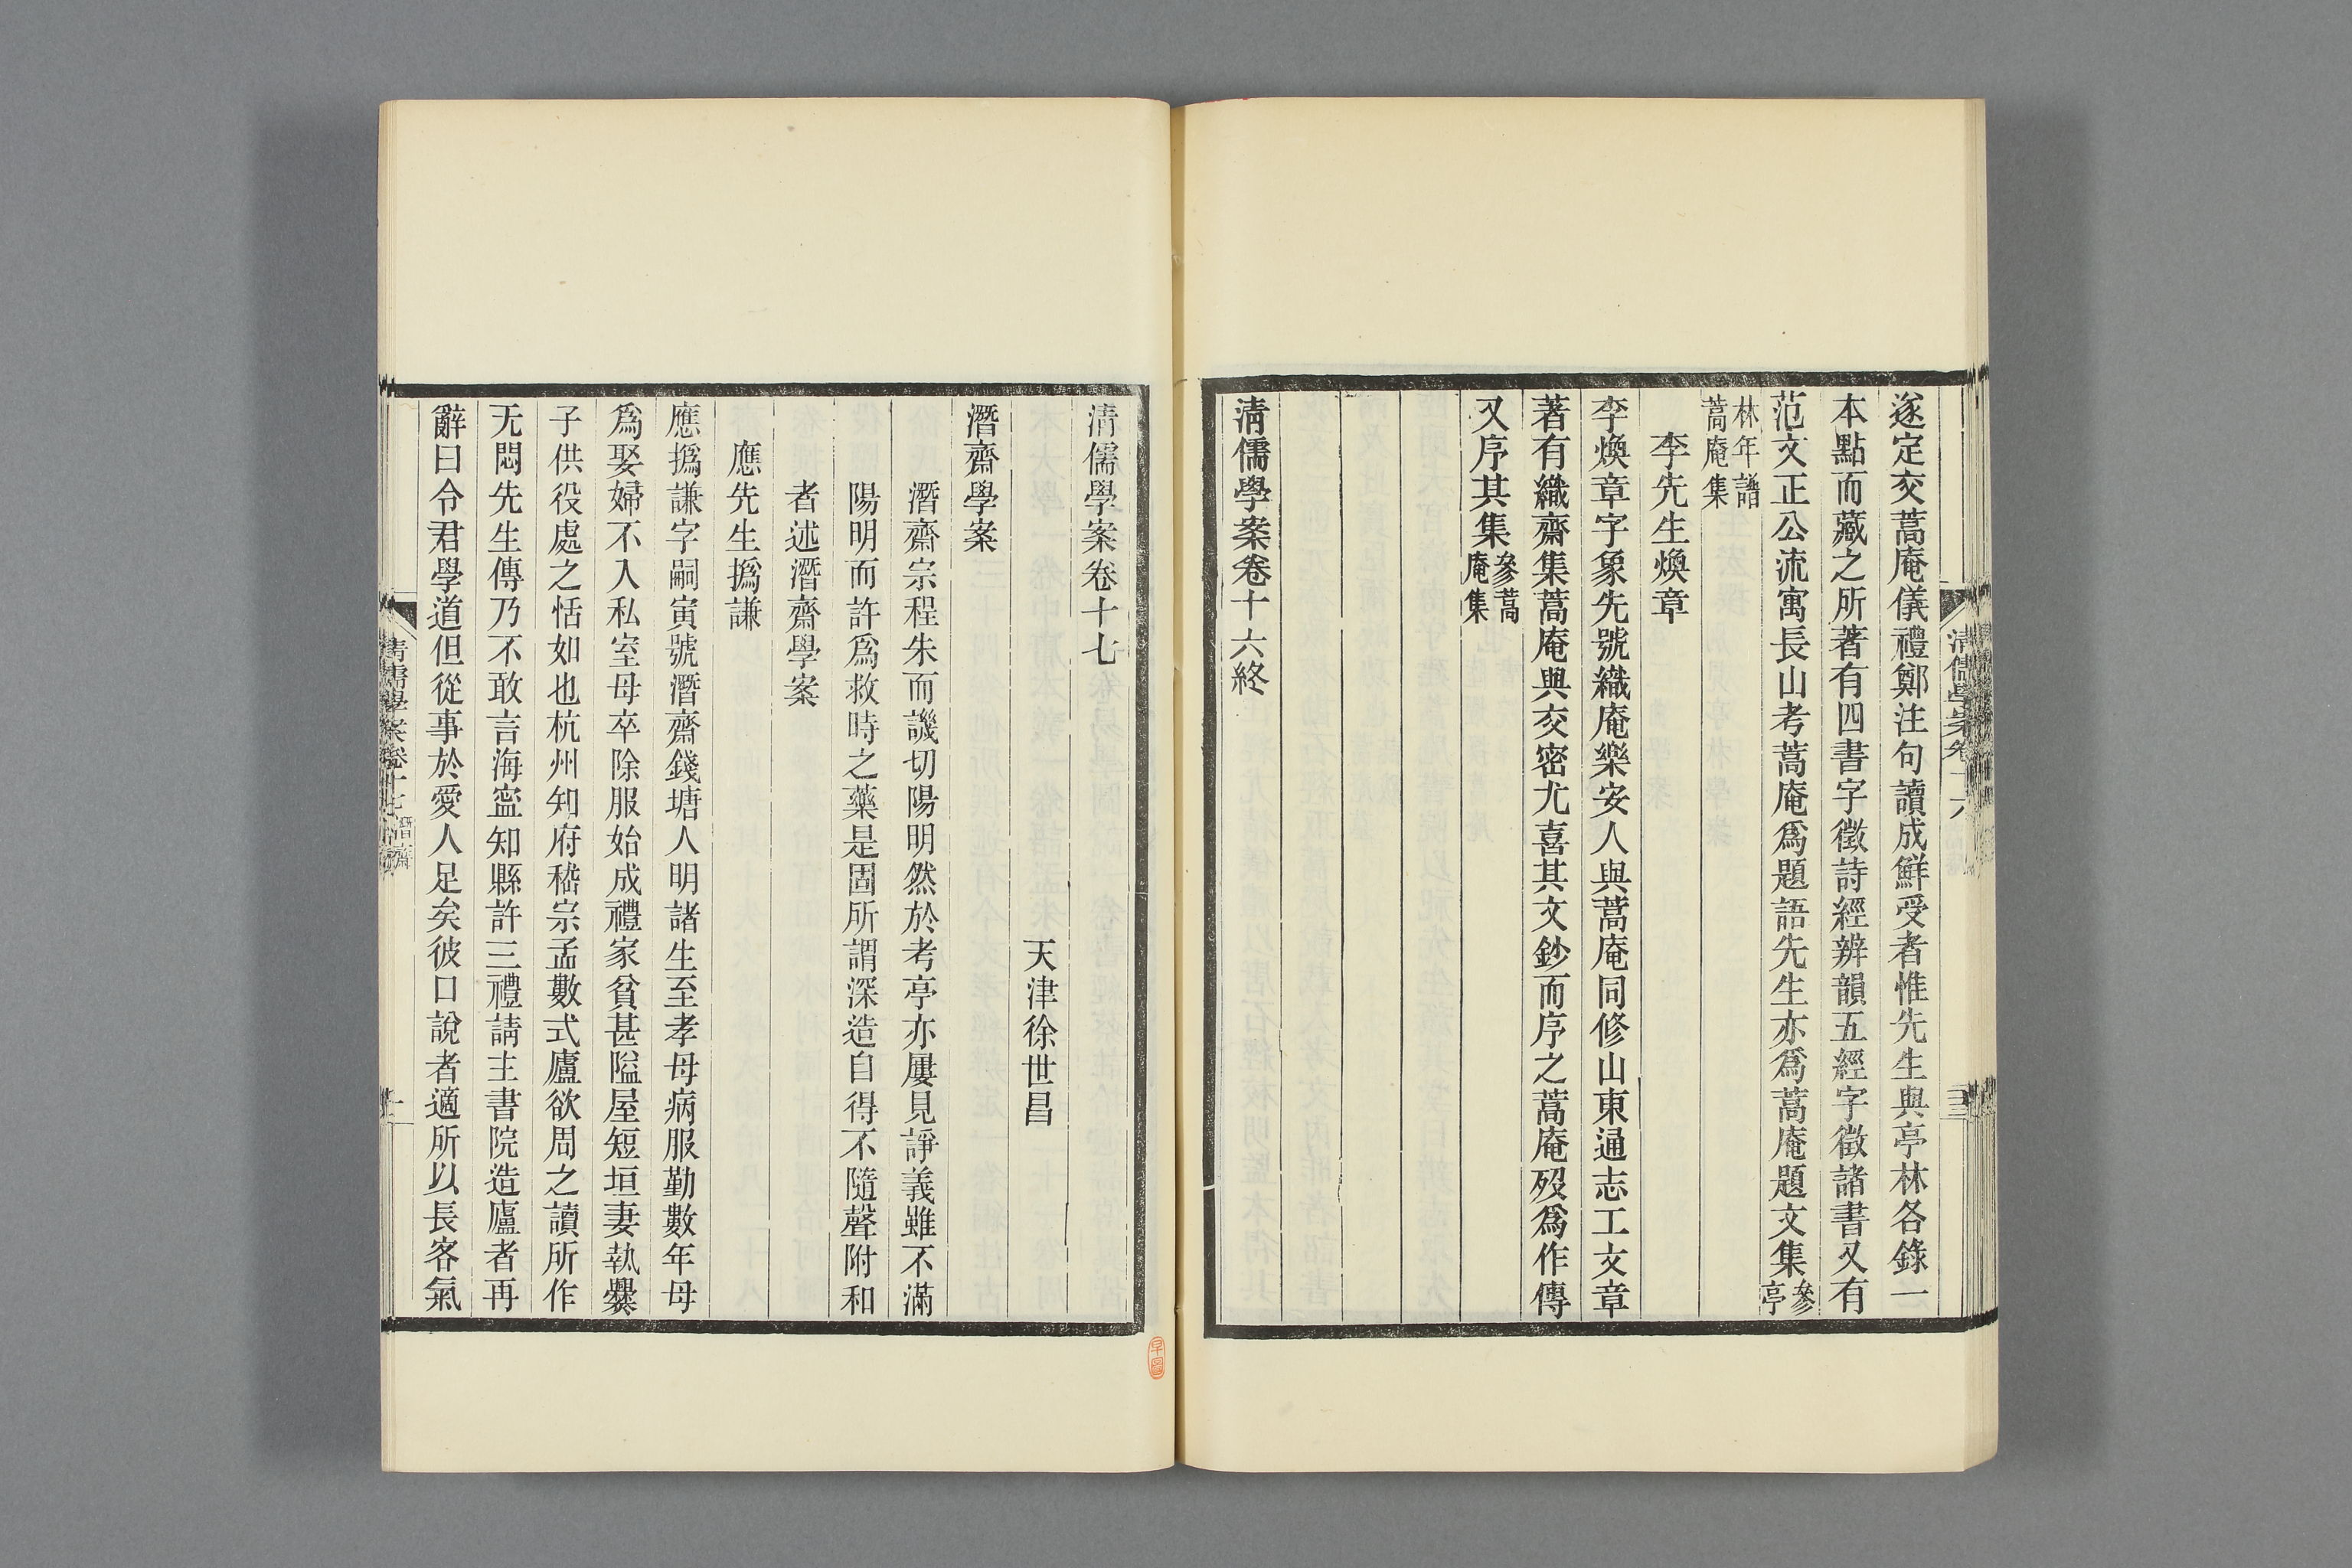 遂定交蒿庵儀禮鄭注句讀成鮮受者惟先生與亭林各錄一
本點而藏之所著有四書字徵詩經辨韻五經字徵諸書又有
范文正公流寓長山考蒿庵爲題語先生亦爲蒿庵題文集參亭
林年譜蒿庵集
李先生煥章
李煥章字象先號織庵樂安人與蒿庵同修山東通志工文章
著有織齋集蒿庵與交密尤喜其文鈔而序之蒿庵歿爲作傳
又序其集參蒿庵集
清儒學案卷十六終
清儒學案卷十六
清儒學案卷十七
天津徐世昌
潛齋學案
潛齋宗程朱而譏切陽明然於考亭亦屢見諍義雖不滿
陽明而許爲救時之藥是固所謂深造自得不隨聲附和
者述潛齋學案
應先生撝謙
應撝謙字嗣寅號潛齋錢塘人明諸生至孝母病服勤數年母
爲娶婦不入私室母卒除服始成禮家貧甚隘屋短垣妻執爨
子供役處之恬如也杭州知府嵇宗孟數式廬欲周之讀所作
无悶先生傳乃不敢言海寍知縣許三禮請主書院造廬者再
辭曰令君學道但從事於愛人足矣彼口說者適所以長客氣
清儒學案卷十七 潛齋
一